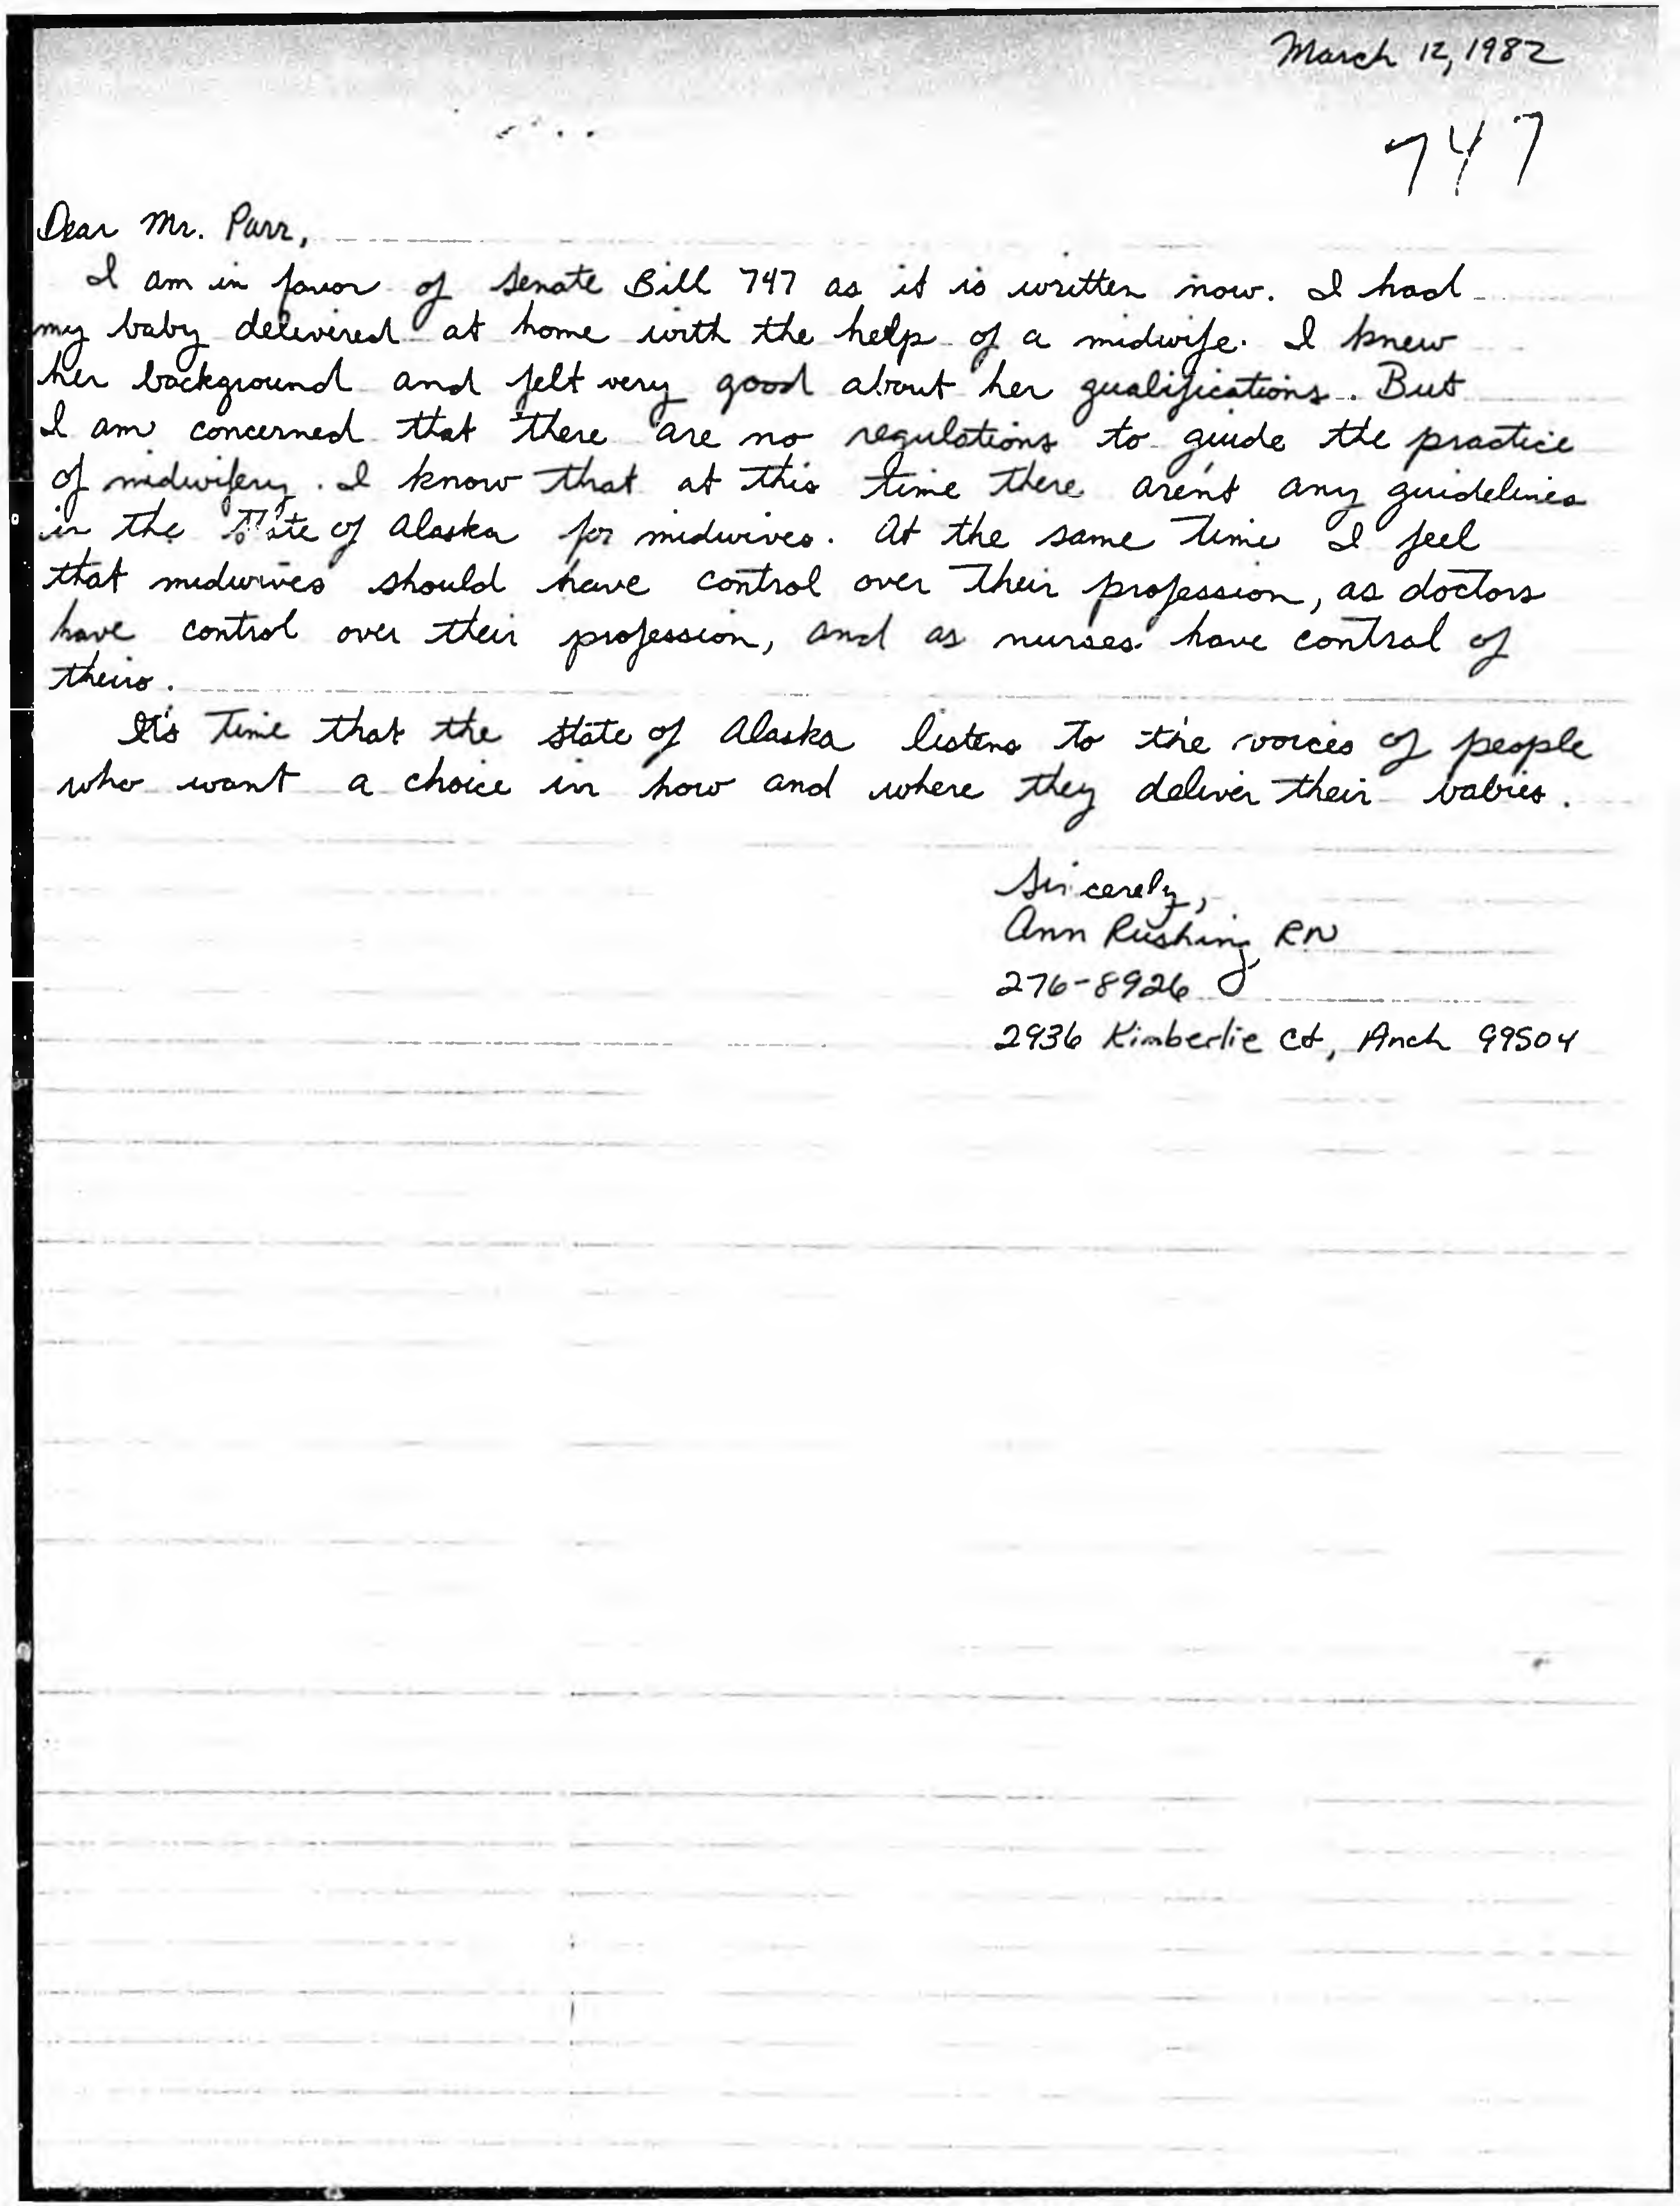 March 12, 1982
747
Dear Mr. Parr,
I am in favor of Senate Bill 747 as it is written now. I had
my baby delivered at home with the help of a midwife. I knew
her background and felt very good about her qualifications. But
I am concerned that there are no regulations to guide the practice
of midwifery. I know that at this time there aren't any guidelines
in the State of Alaska for midwives. At the same time I feel
that midwives should have control over their profession, as doctors
have control over their profession, and as nurses have control of
theirs.
It's time that the State of Alaska listens to the voices of people
who want a choice in how and where they deliver their babies.
Sincerely,
Ann Rushing, RN
276-8926
2936 Kimberlie Ct, Anch 99504